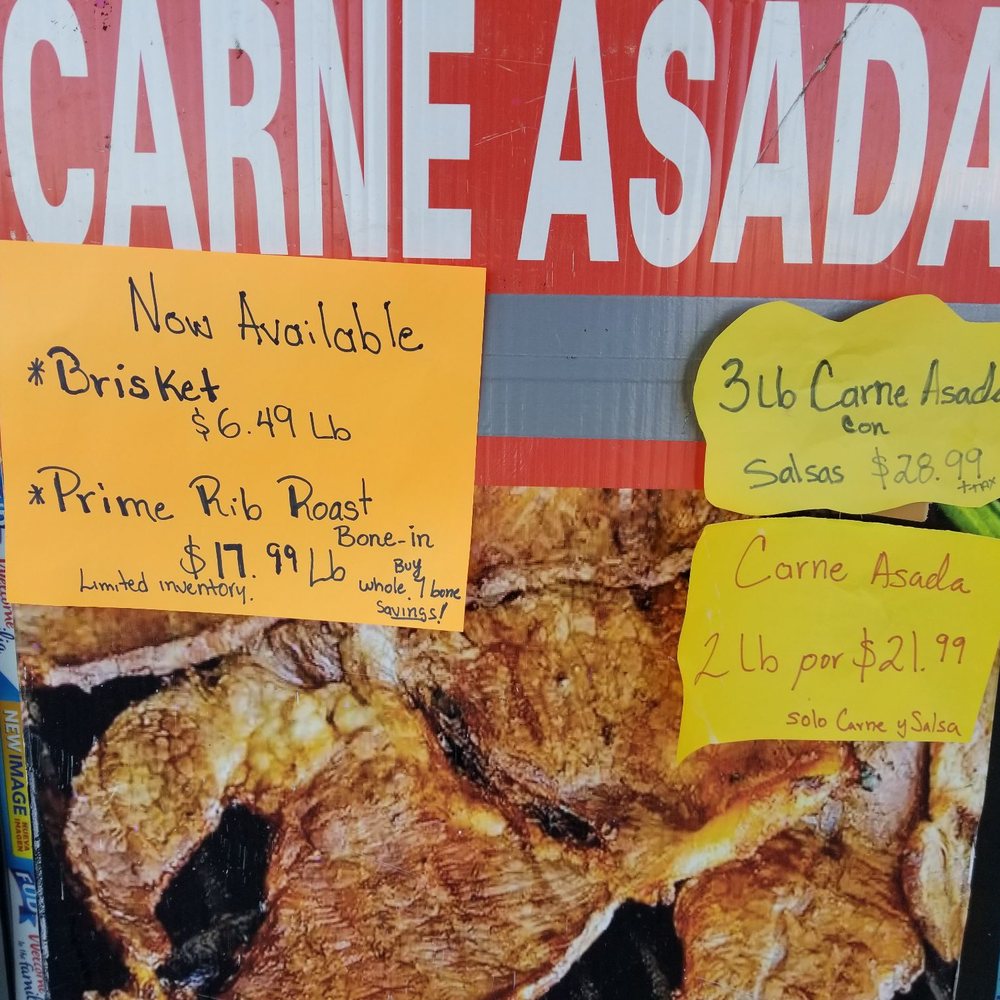 CARNE ASADA
Now Available
*Brisket
$6.49 Lb
*Prime Rib Roast
Bone-in
$17.99 Lb
Limited inventory.
Buy
whole 7 bone
Savings!
3 Lb Carne Asada
con
Salsas $28.99
+TAX
Carne Asada
2 Lb por $21.99
solo Carne y Salsa
NEW IMAGE
NUEVA
IMAGEN
FUD
Welcome
to the family